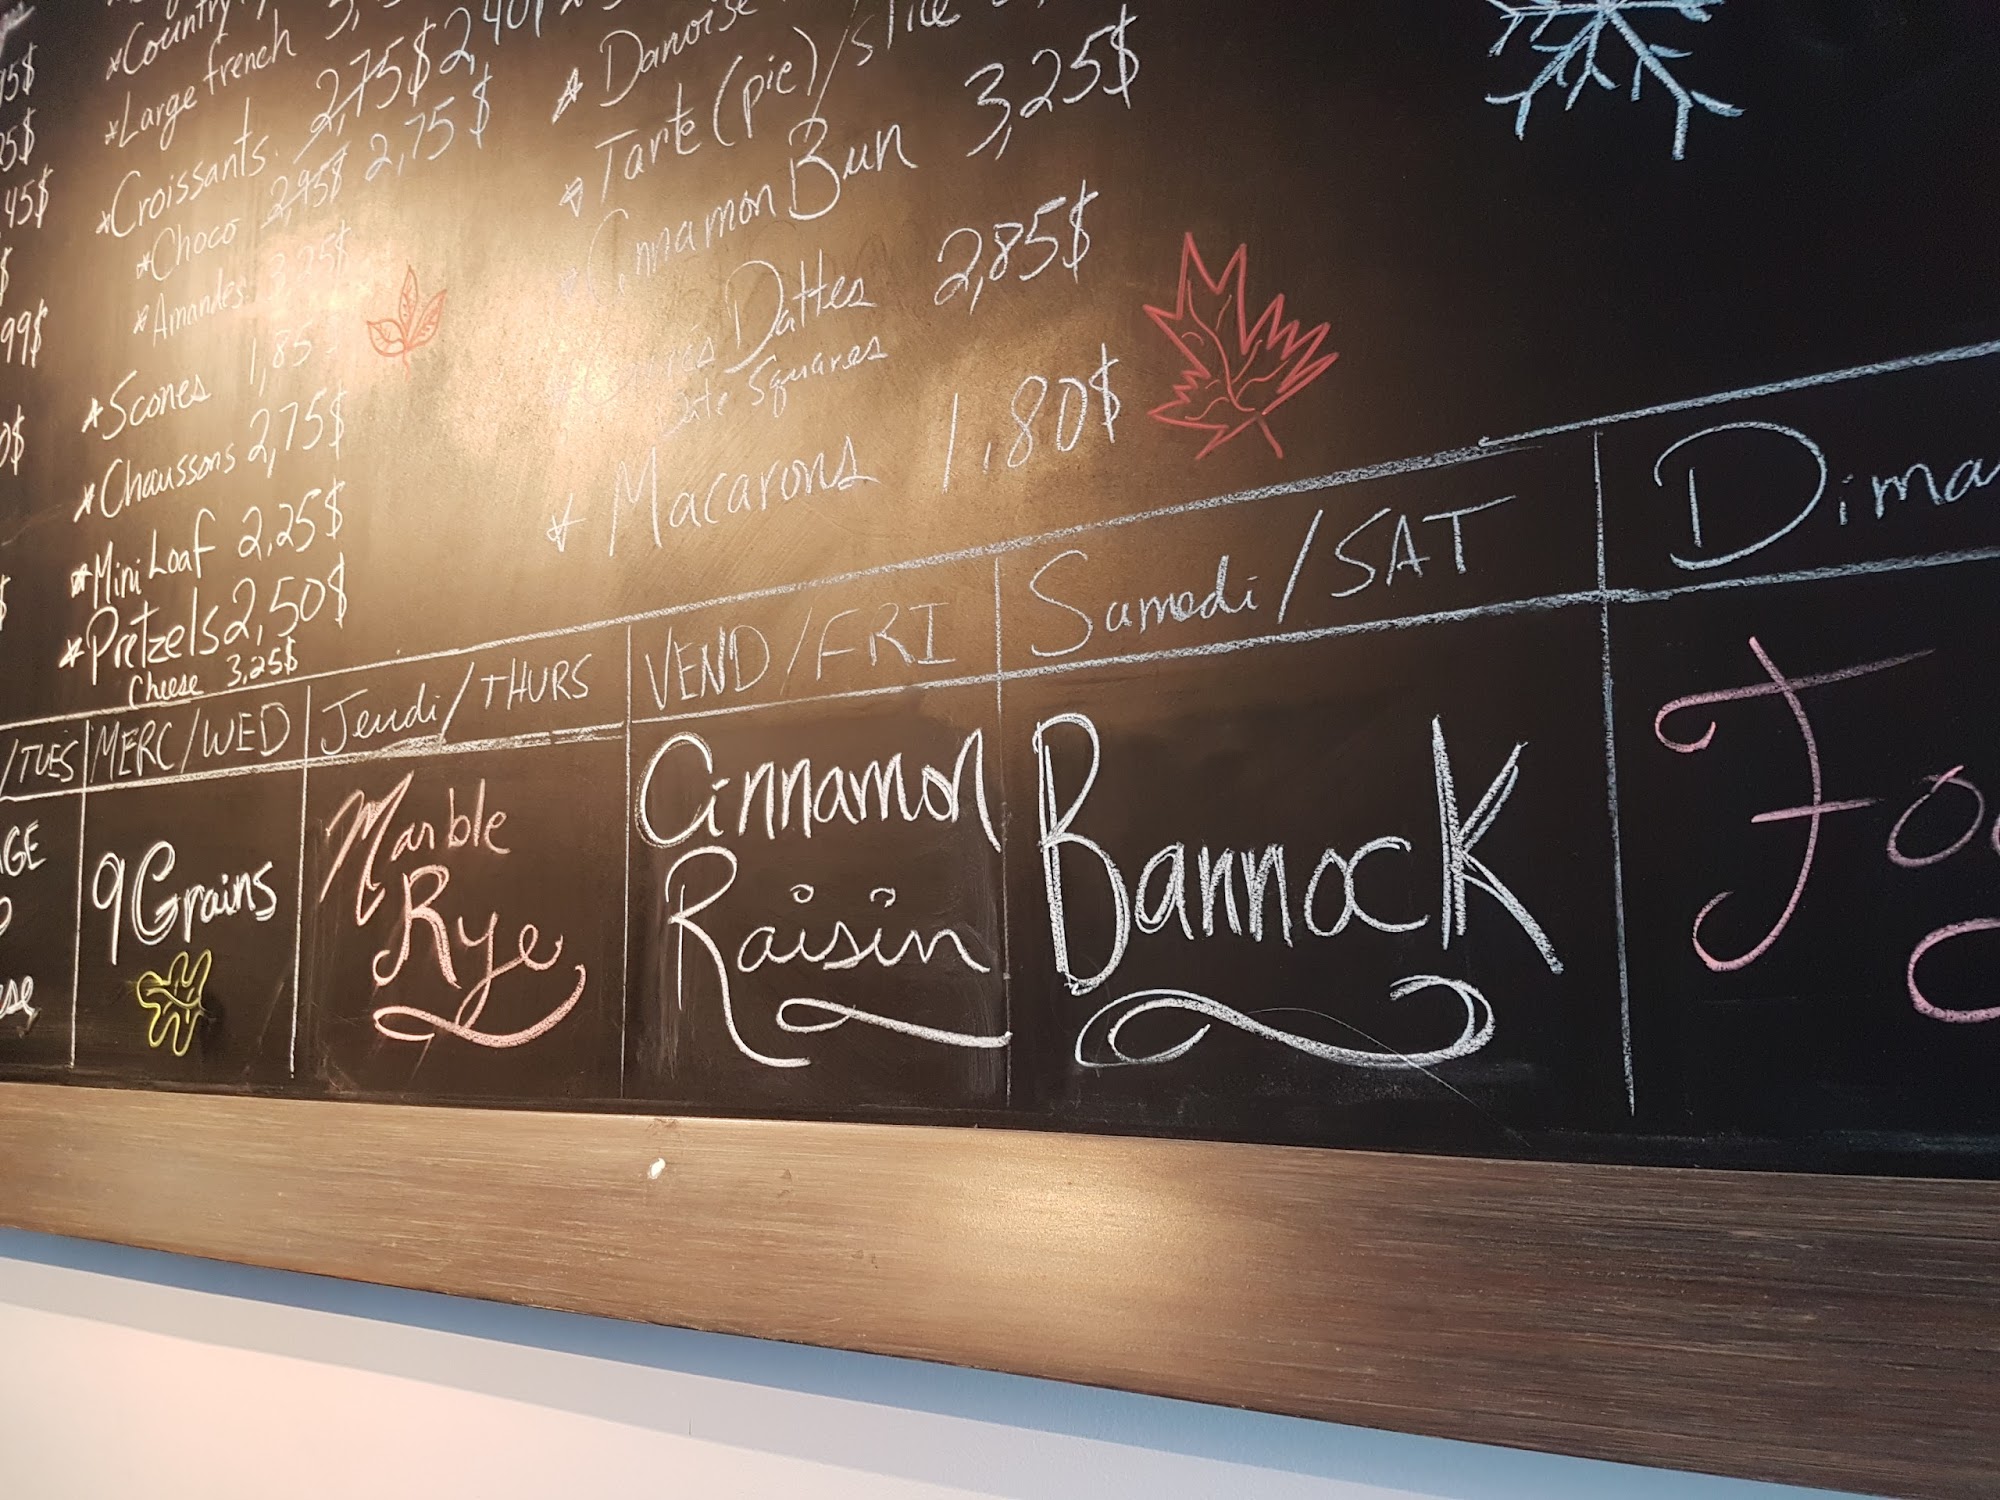 *Country
*Large french 3,
*Croissants 2,75$ 2,40
*Choco 2,95$ 2,75$
*Amandes 3,25$
*Scones 1,85
*Chaussons 2,75$
*Mini Loaf 2,25$
*Pretzels 2,50$
Cheese 3,25$
* Danoise
* Tarte (pie)/slice
* Cinnamon Bun 3,25$
* Carrés Dattes 2,85$
Date Squares
* Macarons 1,80$
5$
5$
,45$
$
99$
0$
$
/TUES
MERC/WED
Jeudi/THURS
VEND/FRI
Samedi/SAT
Dima
9 Grains
Marble
Rye
Cinnamon
Raisin
Bannock
Fo